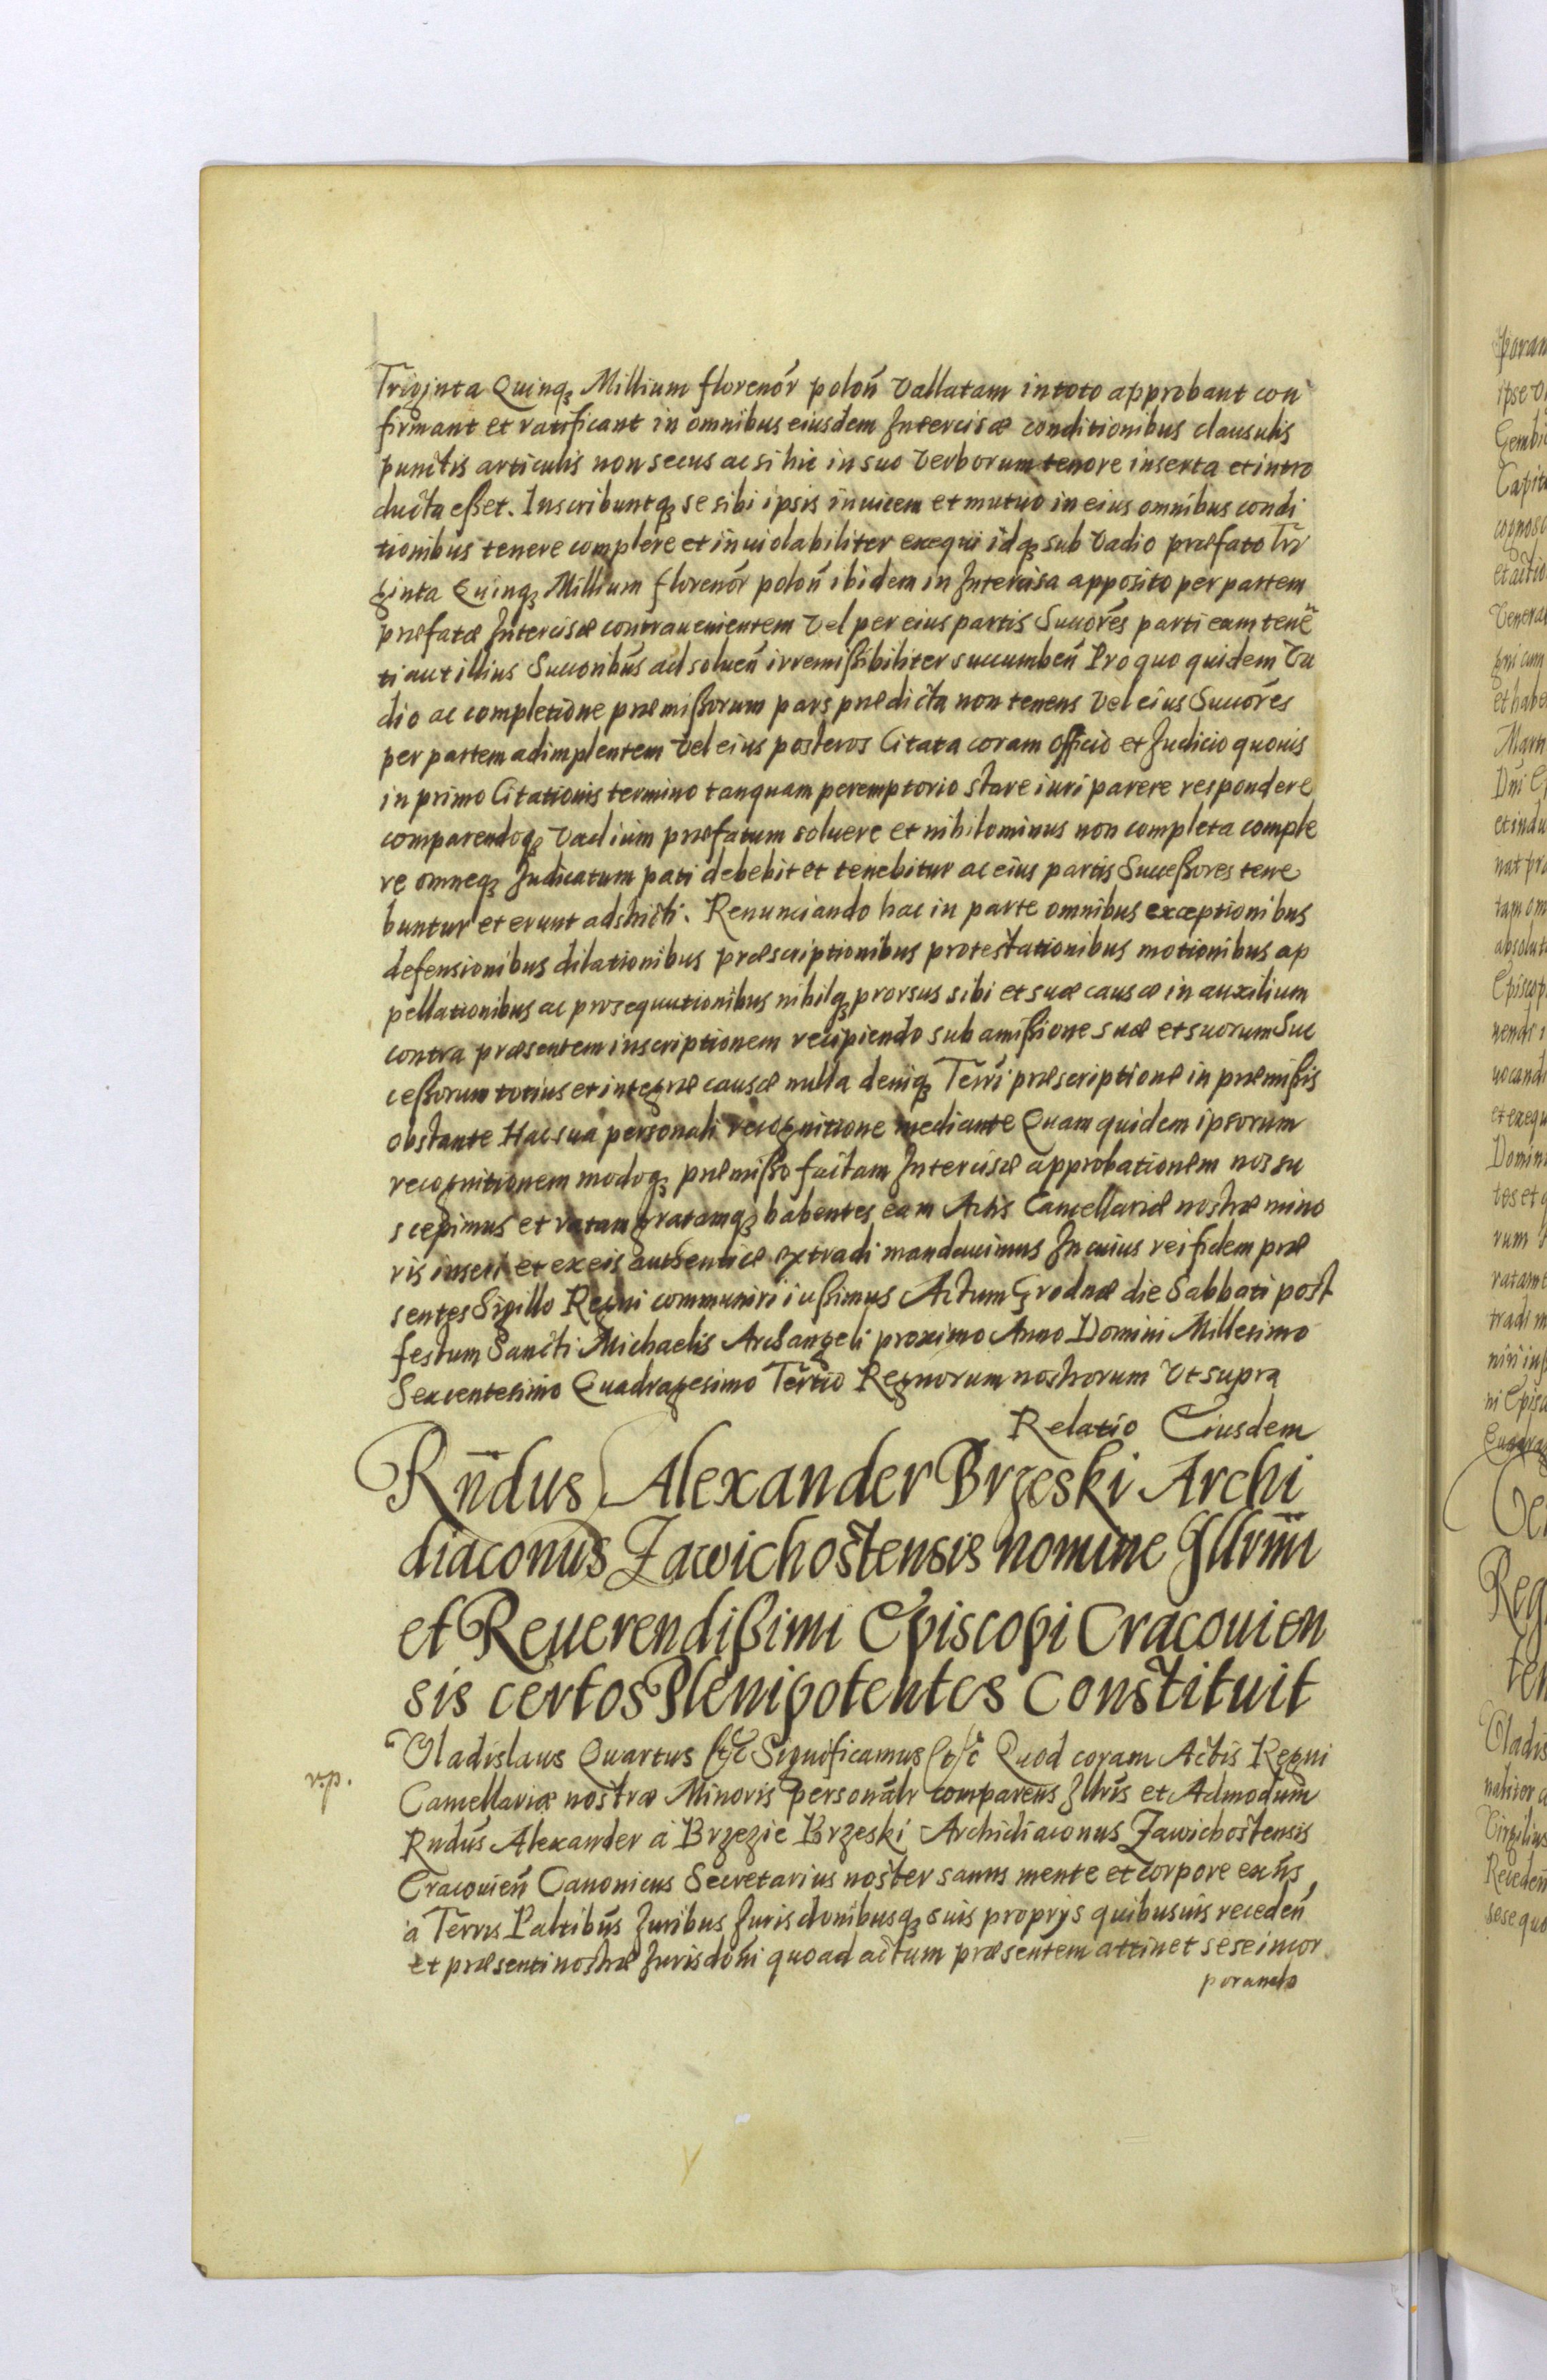 Triginta Quinq₃ Millium florenór poloñ vallatam in toto approbant con
firmant et ratificant in omnibus eiusdem Intercisæ conditionibus clausulis
punctis articulis non secus ac si hic in suo verborum tenore inserta et intro
ducta eßet. Inscribuntq₃ se sibi ipsis inuicem et mutuo in eius omnibus condi
tionibus tenere complere et inuiolabiliter exequi idq₃ sub vadio præfato Tri
ginta Quinq₃ Millium florenór poloñ ibidem in Intercisa apposito per partem
præfatæ Intercisæ contrauenientem vel per eius partis Succores parti eam tene͂
ti aut illius Succoribus ad soluen͂ irremißibiliter succumben͂ Pro quo quidem Va
dio ac completione præmißorum pars prædicta non tenens vel eius Succores
per partem adimplentem vel eius posteros Citata coram officio et Judicio quouis
in primo Citationis termino tanquam peremptorio stare iuri parere respondere
comparendoq₃ vadium præfatum soluere et nihilominus non completa comple
re omneq₃ Judicatum pati debebit et tenebitur ac eius partis Succeßores tene
buntur et erunt adstricti. Renunciando hac in parte omnibus exceptionibus
defensionibus dilationibus præscriptionibus protestationibus motionibus ap
pellationibus ac prosequutionibus nihilq₃ prorsus sibi et suæ causæ in auxilium
contra præsentem inscriptionem recipiendo sub amißione suæ et suorum Suc
ceßorum totius et integræ causæ nulla deniq₃ Terri præscriptione in præmißis
obstante Hac sua personali recognitione mediante Quam quidem ipsorum
recognitionem modoq₃ præmißo factam Intercisæ approbationem nos su
scepimus et ratam gratamq₃ habentes eam Actis Cancellariæ nostræ mino
ris inseri et ex eis authenticæ extradi mandauimus In cuius rei fidem præ
sentes Sigillo Regni communiri iußimus Actum Grodnæ die Sabbati post
festum Sancti Michaelis Archangeli proximo Anno Domini Millesimo
Sexcentesimo Quadragesimo Tertio Regnorum nostrorum vt supra
Relatio Eiusdem
Rñdus Alexander Brzeski Archi
diaconus Zawichostensis nomine Illrmi
et Reuerendißimi Episcopi Cracouien
sis certos Plenipotentes Constituit
Vladislaus Quartus &c Significamus &c Quod coram Actis Regni
v.p.
Cancellariæ nostræ Minoris personalr comparens Illris et Admodum
Rndus Alexander a Brzezie Brzeski Archidiaconus Zawichostensis
Cracouien͂ Canonicus Secretarius noster sanus mente et corpore exns
a Terris Paltibus Juribus Jurisdonibusq₃ suis proprijs quibusuis receden͂
et præsenti nostræ Jurisdoni quoad actum præsentem attinet sese incor
porando